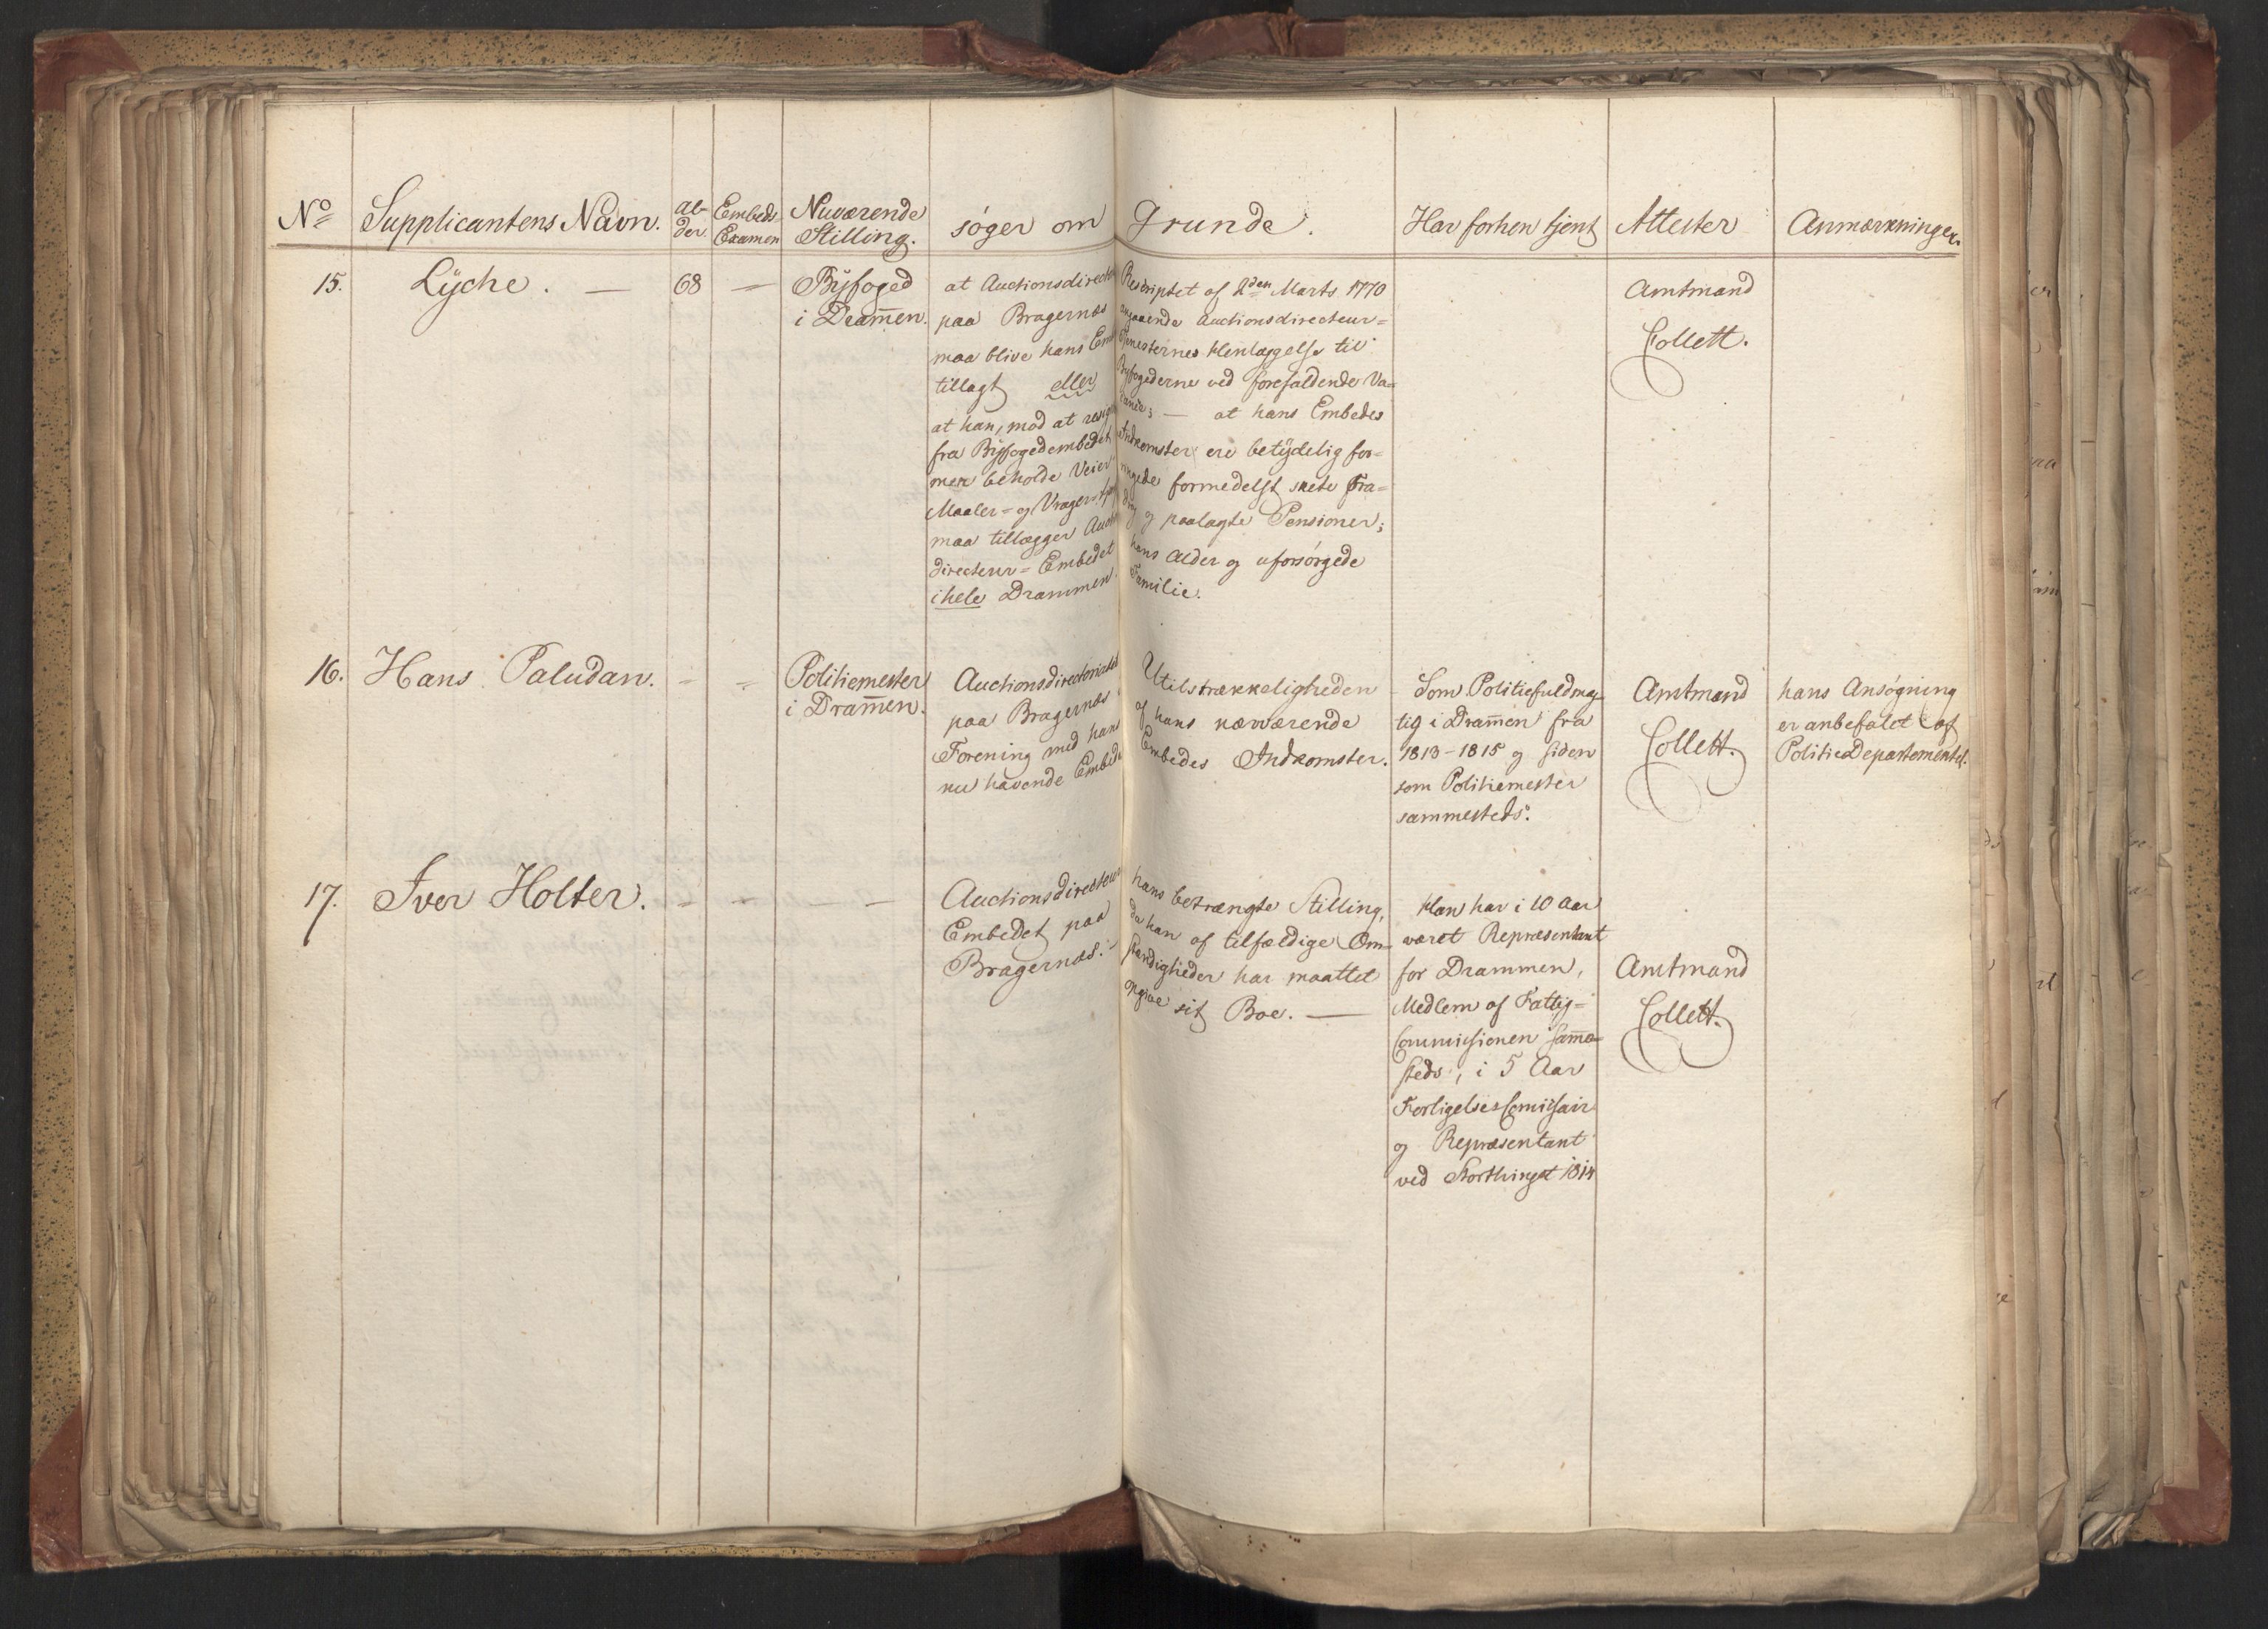 No
Supplicantens Navn.
Al-
der.
Embeds
Examen
Nuværende
Stilling.
søger om
Grunde.
Har forhen tjent
Attester
Anmærkninger.
15.
Lÿche. —
68
—
Bÿfoged
i Dram̅en.
at Auctionsdirect
paa Bragernæs
maa blive hans Em
tillagt eller
at han, mod at resig
fra Bÿfogedembedet
men beholde Veier
Maaler- og Vrager
maa tillægger Auct
directeur- Embedet
i hele Drammen
Rescriptet af 2den Marts 1770
angaaende Auctionsdirecteur-
Tjenesternes Henlæggelse til
Byfogederne ved forefaldende Va-
cancer; — at hans Embedes
Indkomster ere betÿdelig for-
ringede formedelst skete Fra-
og paalagte Pensioner;
hans Alder og uforsörgede
Familie.
Amtmand
Collett.
16.
Hans Paludan.
Politiemester
i Dram̅en.
Auctionsdirectoriatet
paa Bragernæs
Forening med hans
nu havende Embede
Utilstrækkeligheden
af hans nærværende
Embedes Indkomster.
Som Politiefuldmæg-
tig i Dram̅en fra
1813-1815 og siden
som Politiemester
sammesteds.
Amtmand
Collett.
hans Ansøgning
er anbefalet af
PolitieDepartementet.
17.
Iver Holter.
— —
Auctionsdirecteur
Embedet paa
Bragernæs.
hans betrængte Stilling,
da han af tilfældige Om-
stændigheder har maattet
opgive sit Boe. —
Han har i 10 Aar
været Repræsentant
for Drammen,
Medlem af Fattig-
Commissionen sam̅e-
steds, i 5 Aar
ForligelsesCom̅issair
og Repræsentant
ved Storthinget 1814
Amtmand
Collett.